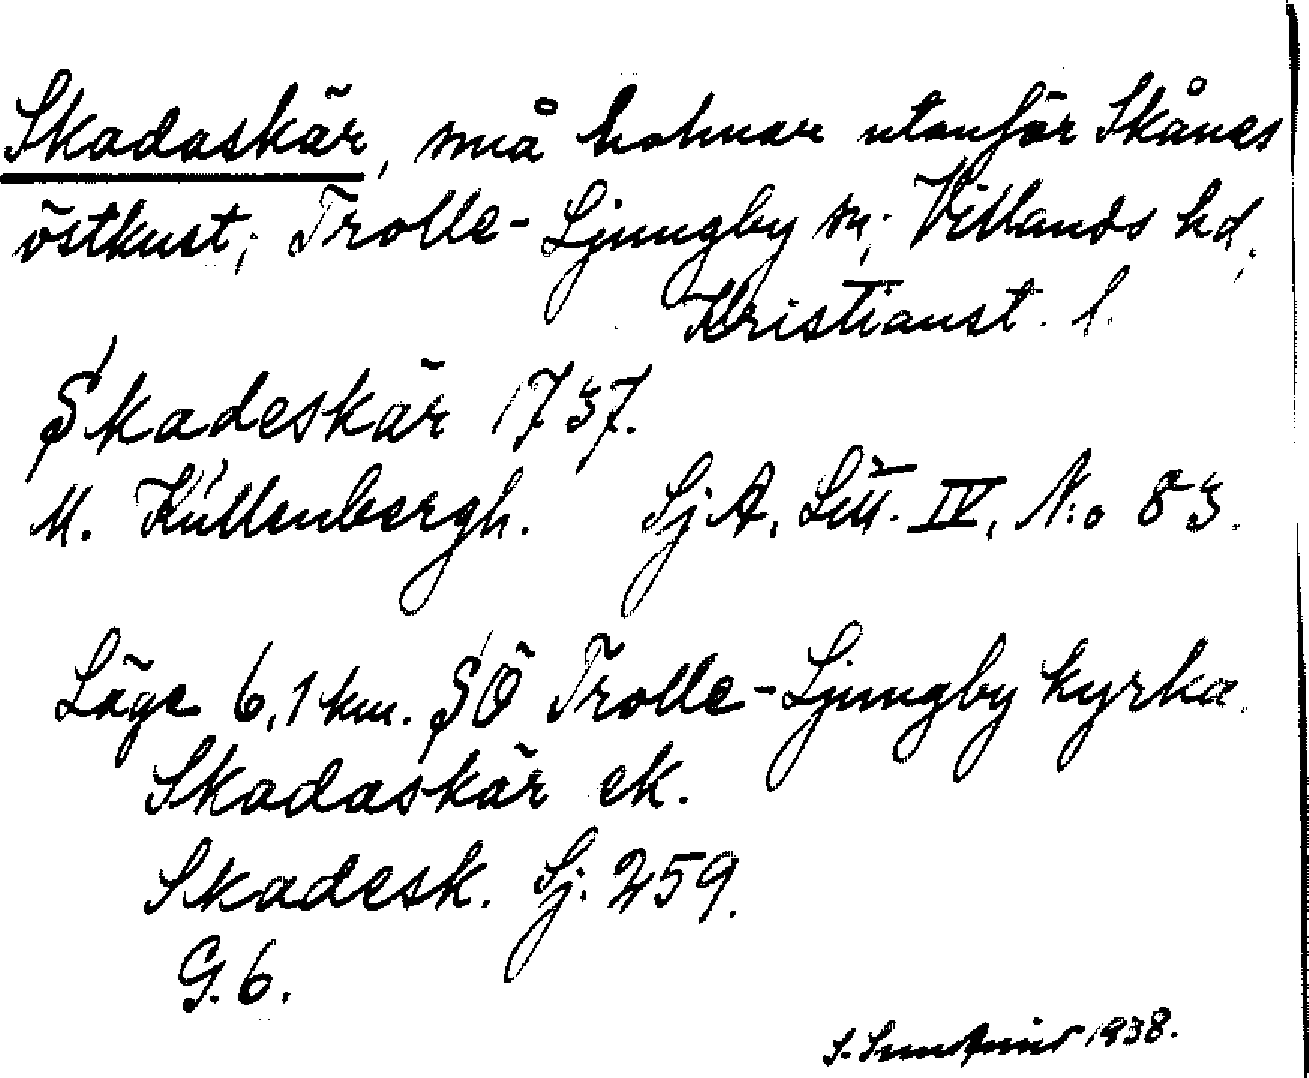 Skadaskär, små holmar utanför Skånes
östkust; Trolle-Ljungby sn; Villands hd,
Kristianst. l.
Skadeskär 1737.
M. Kullenbergh. SjA, Litt. IV, N:o 83.
Läge 6,1 km. SÖ Trolle-Ljungby kyrka.
Skadaskär ek.
Skadesk. Sj. 259.
G. 6.
S. 1938.